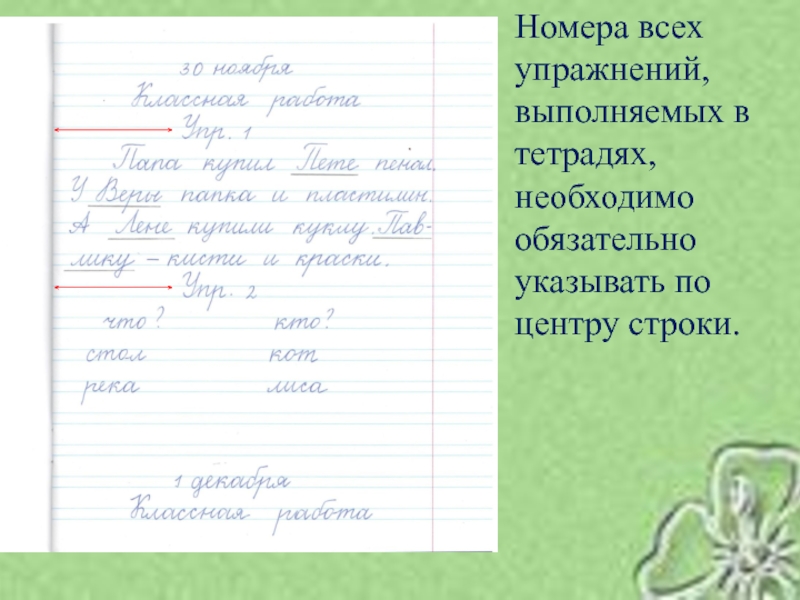 30 ноября
Классная работа
Упр. 1
Папа купил Пете пенал.
У Веры папка и пластилин.
А Лене купили куклу. Пав-
лику – кисти и краски.
Упр. 2
что? кто?
стол кот
река лиса
1 декабря
Классная работа
Номера всех
упражнений,
выполняемых в
тетрадях,
необходимо
обязательно
указывать по
центру строки.